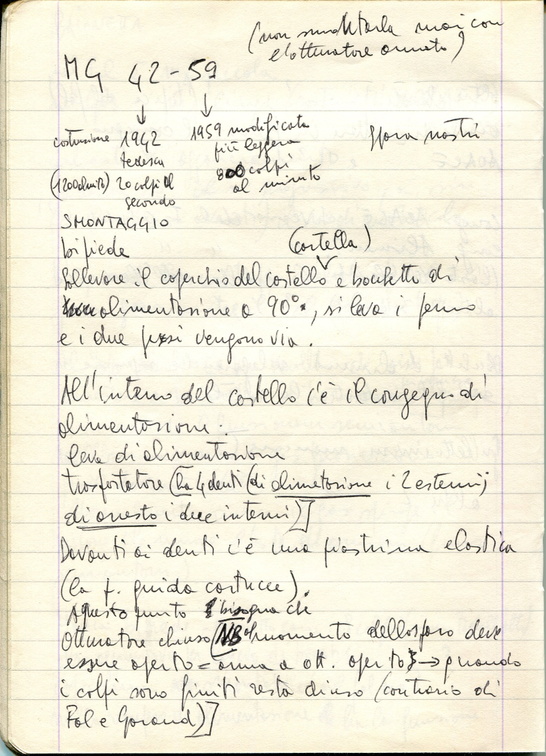 (non smontarla mai con
l'otturatore armato)
MG 42-59
costruzione 1942 1959 modificata Spara nastri
tedesca più leggera
(1200 al minuto) 20 colpi al 800 colpi
secondo al minuto
SMONTAGGIO
bipiede (cartella)
Sollevare il coperchio del castello e bocchetta di
alimentazione a 90°, si leva i perno
e i due pezzi vengono via.
All'interno del castello c'è il congegno di
alimentazione.
leva di alimentazione
trasportatore (ha 4 denti (di alimetazione i 2 esterni)
di arresto i due interni)]
Davanti ai denti c'è una piastrina elastica
(la f. guida cartucce).
A questo punto bisogna che
Otturatore chiuso [NB al momento dello sparo deve
essere aperto = arma a ott. aperto → quando
i colpi sono finiti resta chiuso (contrario di
Fal e Garand)]